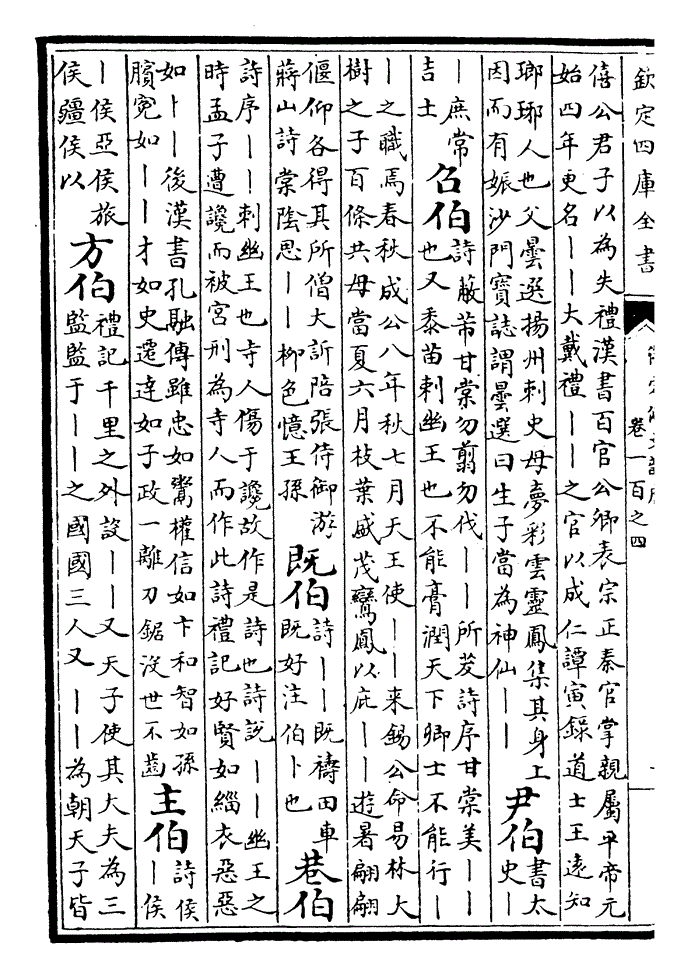 欽定四庫全書
卷一百之四
僖公君子以為失禮漢書百官公卿表宗正秦官掌親屬平帝元
始四年更名丨丨大戴禮丨丨之官以成仁譚寅錄道士王遠知
瑯琊人也父曇選揚州刺史母夢彩雲靈鳳集其身上
因而有娠沙門寶誌謂曇選曰生子當為神仙丨丨
尹伯
書太
史丨
丨庶常
吉士
召伯
詩蔽芾甘棠勿翦勿伐丨丨所茇詩序甘棠美丨丨
也又黍苗刺幽王也不能膏潤天下卿士不能行丨
丨之職焉春秋成公八年秋七月天王使丨丨来錫公命易林大
樹之子百條共母當夏六月枝葉盛茂鸞鳳以庇丨丨遊暑翩翩
偃仰各得其所僧大訢陪張侍御游
蔣山詩棠陰思丨丨柳色憶王孫
既伯
詩丨丨既禱田車
既好注伯卜也
巷伯
詩序丨丨刺幽王也寺人傷于讒故作是詩也詩說丨丨幽王之
時孟子遭讒而被宮刑為寺人而作此詩禮記好賢如緇衣惡惡
如丨丨後漢書孔融傳雖忠如鬻權信如卞和智如孫
臏寃如丨丨才如史遷達如子政一離刀鋸沒世不齒
主伯
詩侯
丨侯
丨侯亞侯旅
侯疆侯以
方伯
禮記千里之外設丨丨又天子使其大夫為三
監監于丨丨之國國三人又丨丨為朝天子皆